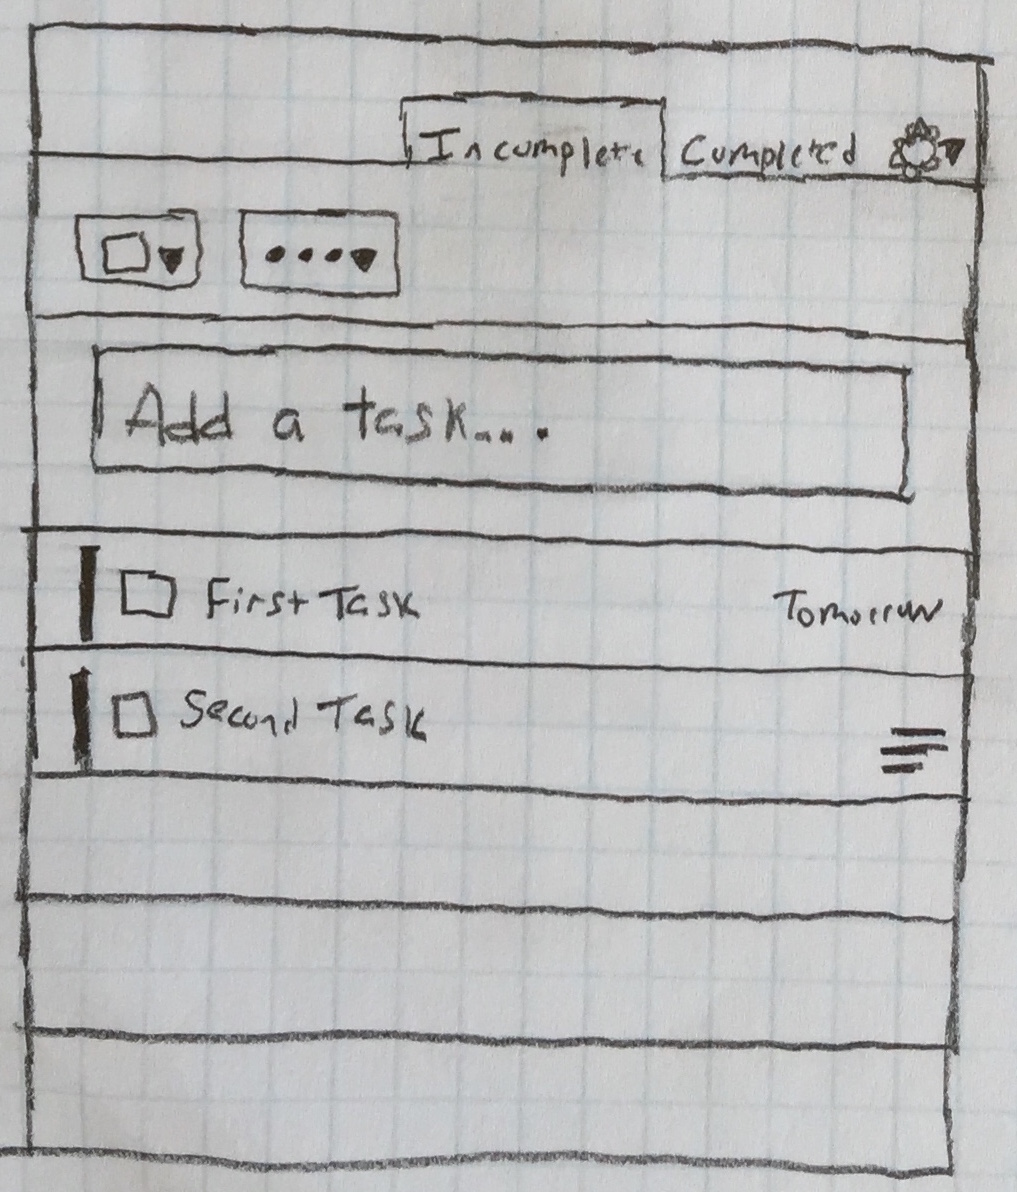 Incomplete Completed
Add a task...
First Task Tomorrow
Second Task